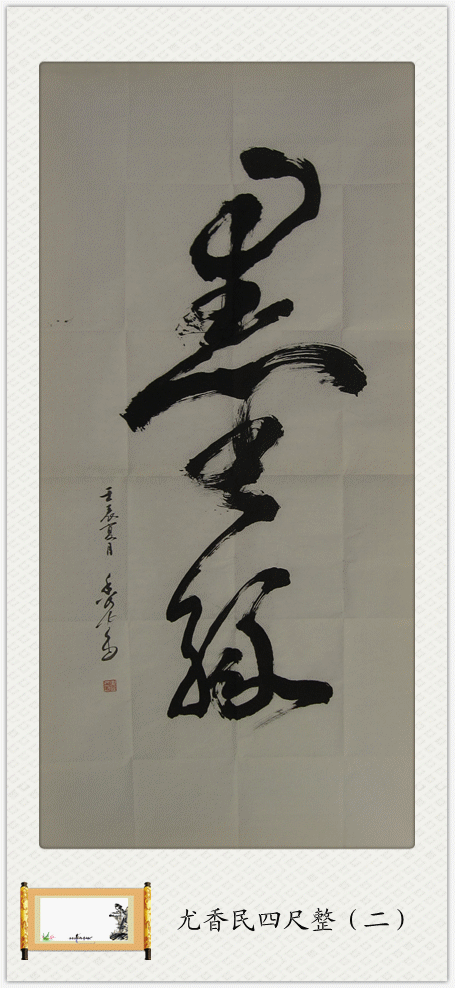 墨缘
壬辰夏月
尤香民四尺整（二）